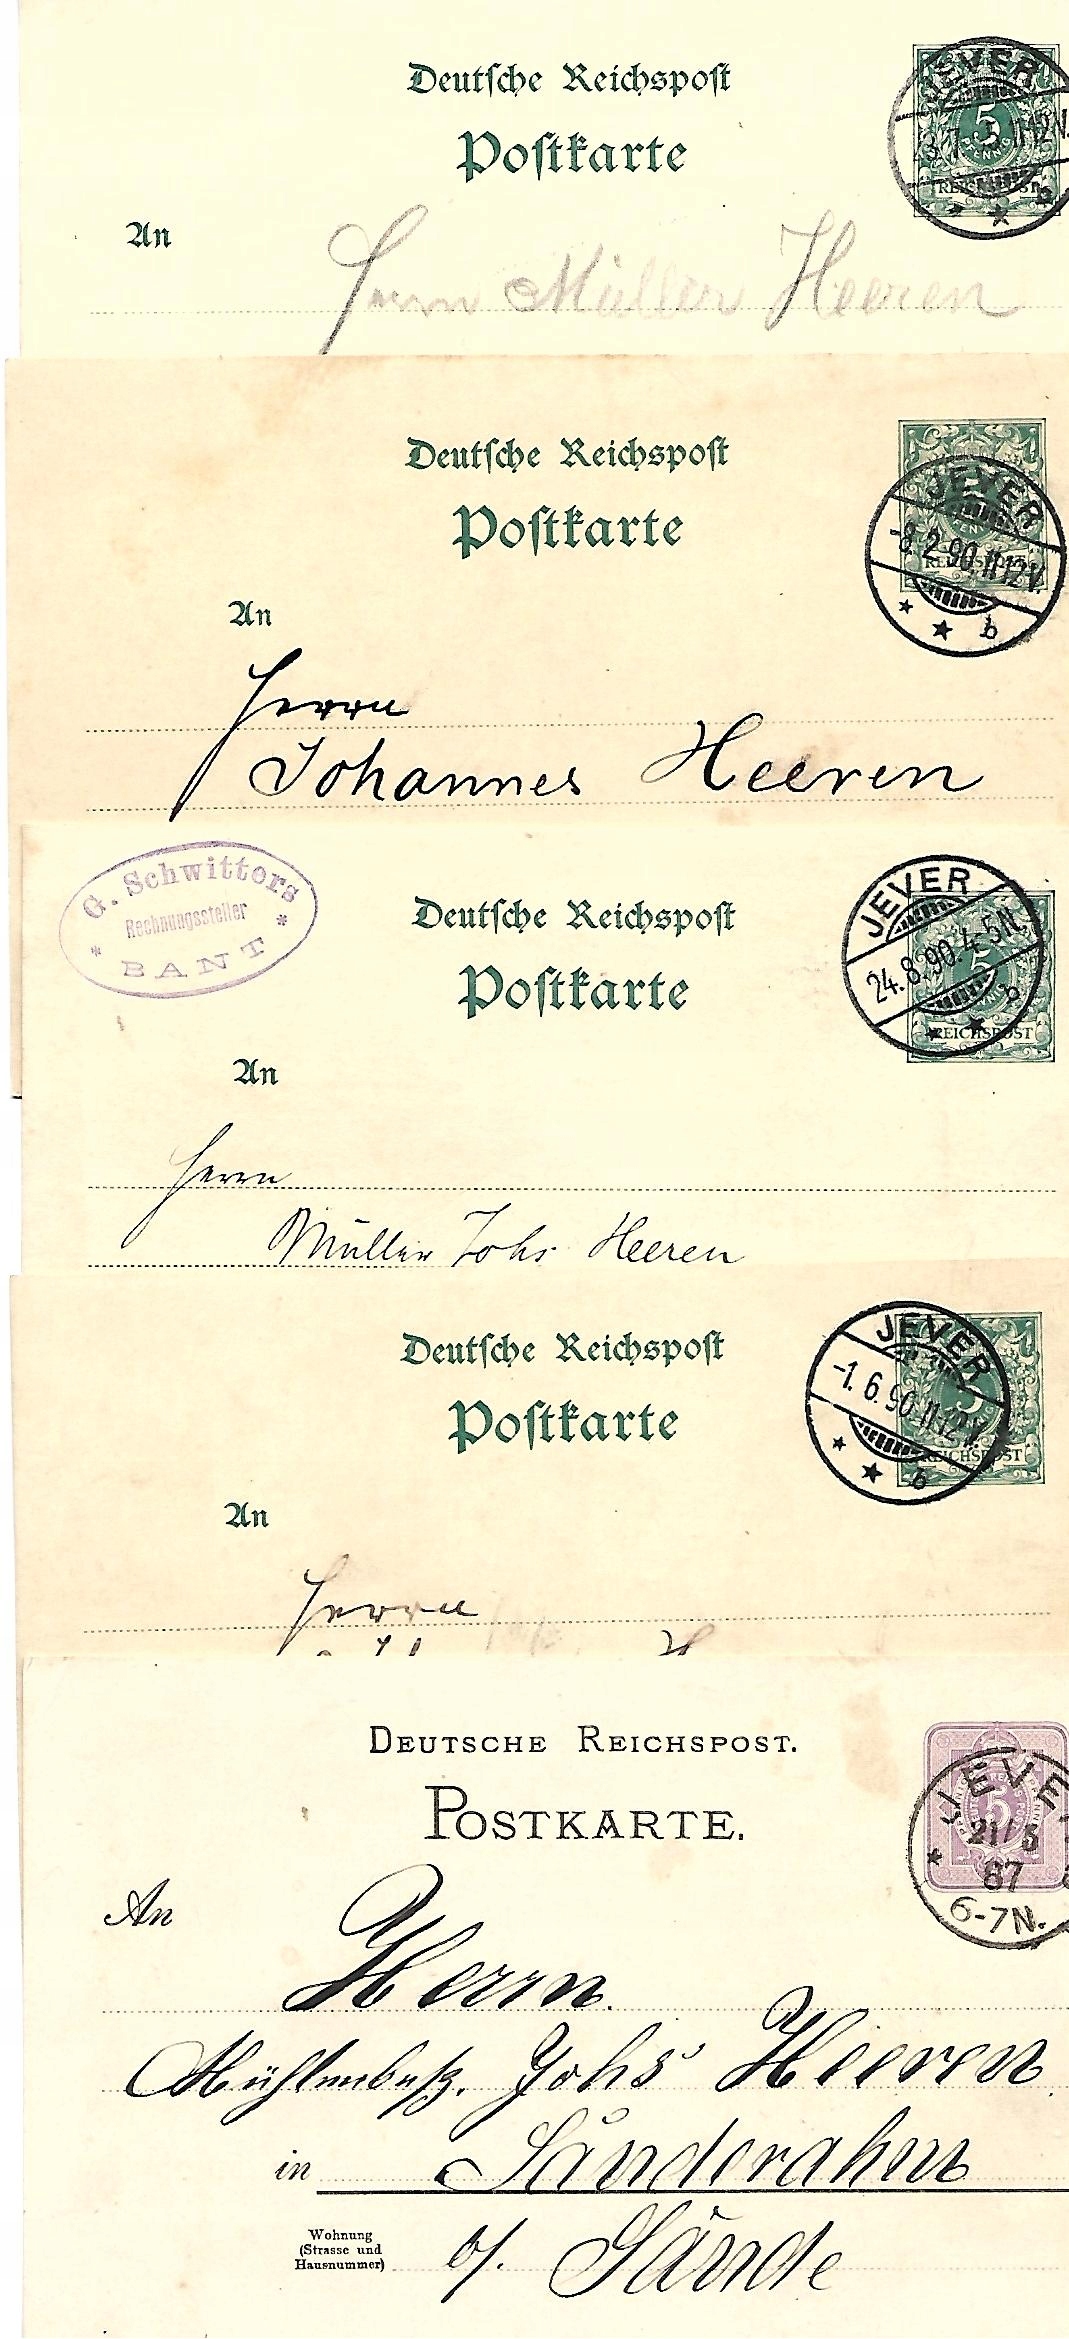 Deutsche Reichspost
Postkarte
An
JEVER
5
PFENNIG
REICHSPOST
Herrn Müller Heeren
Deutsche Reichspost
Postkarte
An
JEVER
-8.2.90.11-12V.
b
Herrn
Johannes Heeren
G. Schwitters
Rechnungssteller
BANT
Deutsche Reichspost
Postkarte
An
JEVER
24.8.90.4-5N.
5
b
REICHSPOST
Herrn
Müller Johs Heeren
Deutsche Reichspost
Postkarte
An
JEVER
-1.6.90.11-12V.
5
b
REICHSPOST
Herrn
DEUTSCHE REICHSPOST.
POSTKARTE.
An
JEVE
5
21/5
87
6-7N.
Herrn
Mühlenbesz. Johs Heeren
in Sanderahm
b/. Sande
Wohnung
(Strasse und
Hausnummer)